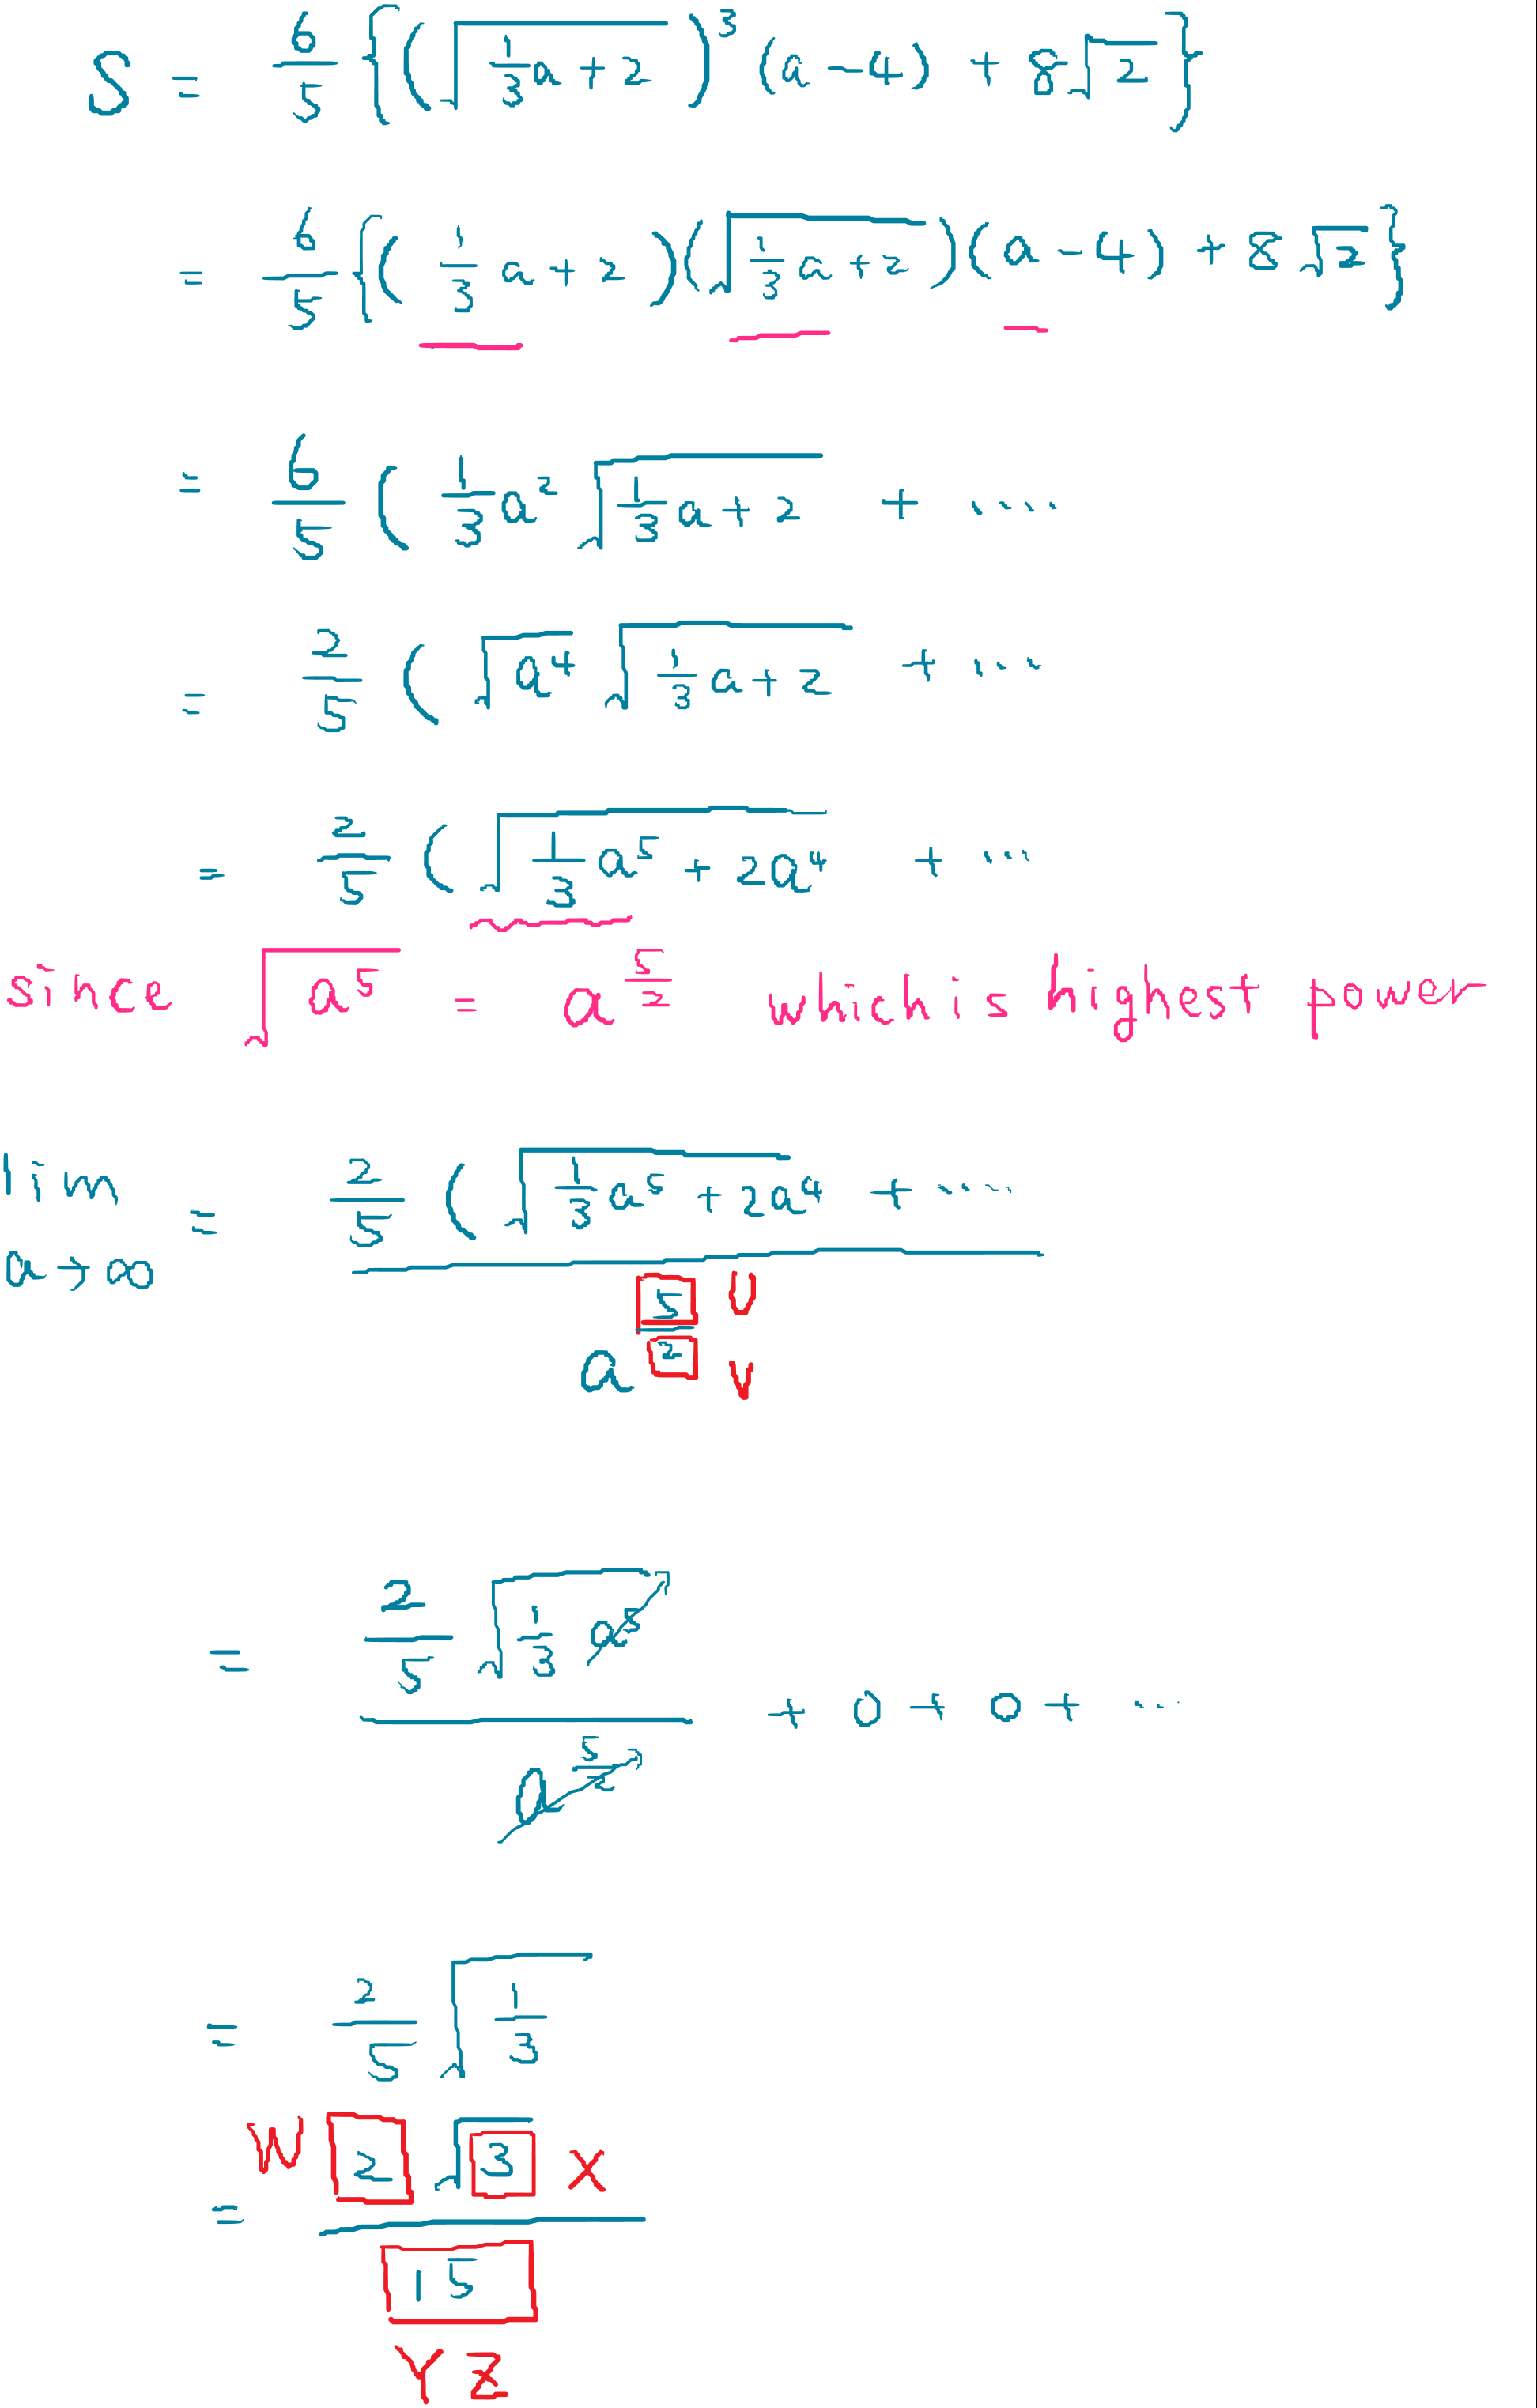 S = 6/5 { ( √(1/3 a + 2) )³ (a − 4) + 8√2 }
= 6/5 { ( 1/3 a + 2 ) ( √(1/3 a + 2) ) ( a − 4 ) + 8√2 }
= 6/5 ( 1/3 a² √(1/3 a + 2) + ....
= 2/5 ( √a⁴ √(1/3 a + 2) + ....
= 2/5 ( √(1/3 a⁵ + 2a⁴) + ....
since √a⁵ = a^(5/2) which is highest power
lim a→∞ = 2/5 ( √(1/3 a⁵ + 2a⁴ + .... / a^(5/2) U V
= 2/5 √(1/3 a⁵) / a^(5/2) + 0 + 0 + ...
= 2/5 √(1/3)
W X
= 2 √3 / 15
Y Z